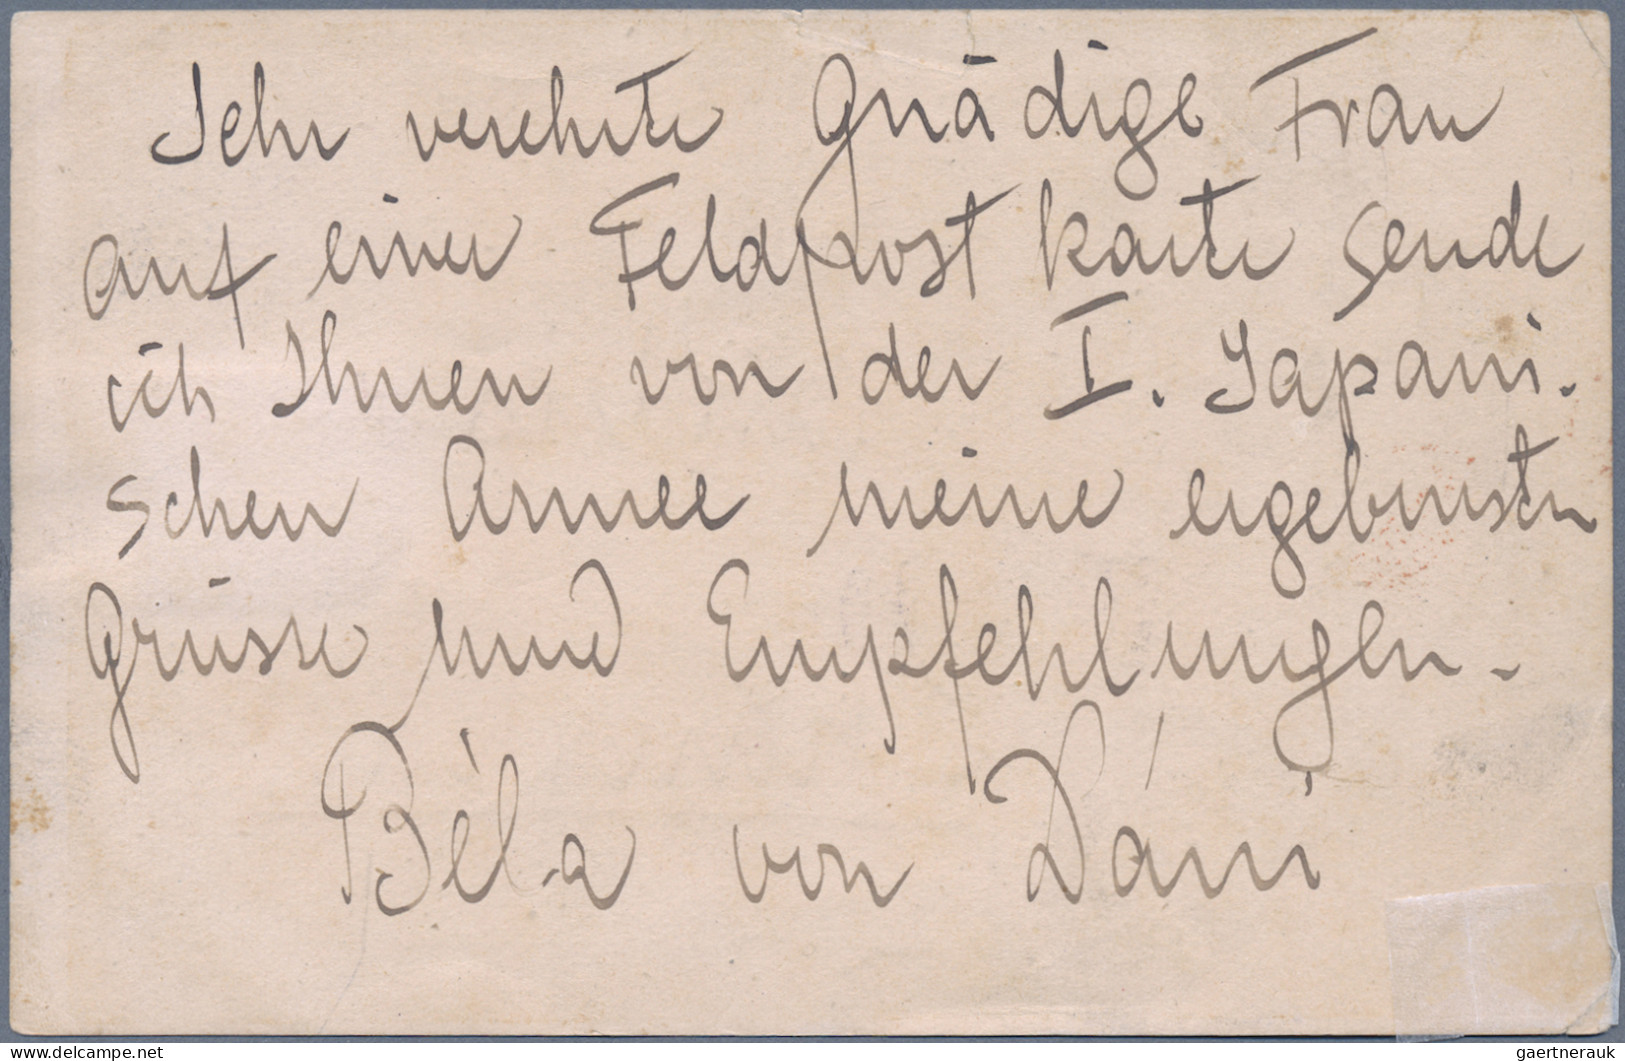 Sehr verehrte Gnädige Frau
auf einer Feldpost karte sende
ich Ihnen von der I. Japani.
schen Armee meine ergebensten
Grüsse und Empfehlungen -
Béla von Dáni
delcampe.net
gaertnerauk